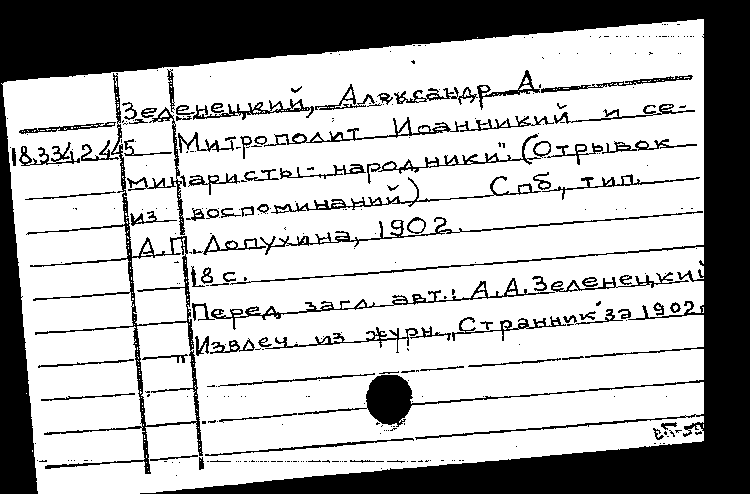 Зеленецкий, Александр А.
18.334.2.445 Митрополит Иоанникий и се-
минаристы-„народники". (Отрывок
из воспоминаний). Спб., тип.
А.П. Лопухина, 1902.
18 с.
Перед загл. авт.: А.А.Зеленецкий
Извлеч. из журн. „Странник" за 1902г